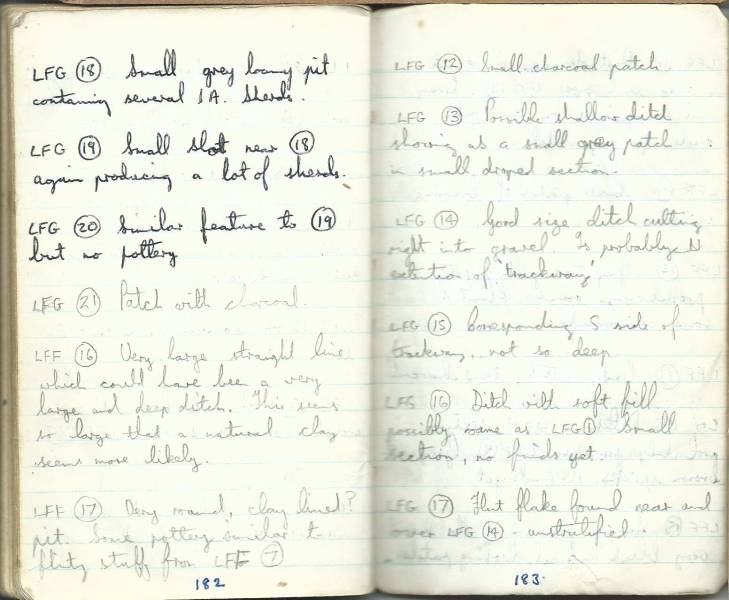 LFG (18) Small grey loamy pit
containing several I A. Sherds.
LFG (19) Small slot near (18)
again producing a lot of sherds.
LFG (20) Similar feature to (19)
but no pottery
LFG (21) Patch with charcoal.
LFF (16) Very large straight line
which could have been a very
large and deep ditch. This seems
so large that a natural clay
seems more likely.
LFF (17) Very round, clay lined?
pit. Some pottery similar to
flinty stuff from LFF (7)
182
LFG (12) Small charcoal patch.
LFG (13) Possible shallow ditch
showing as a small grey patch
in small section.
LFG (14) Good size ditch cutting
right into gravel. Is probably N
extention of 'trackway'
LFG (15) Corresponding S side of
trackway, not so deep
LFG (16) Ditch with soft fill
possibly same as LFG (1) Small
section, no finds yet.
LFG (17) Flint flake found near and
over LFG (14) - unstratified.
183.